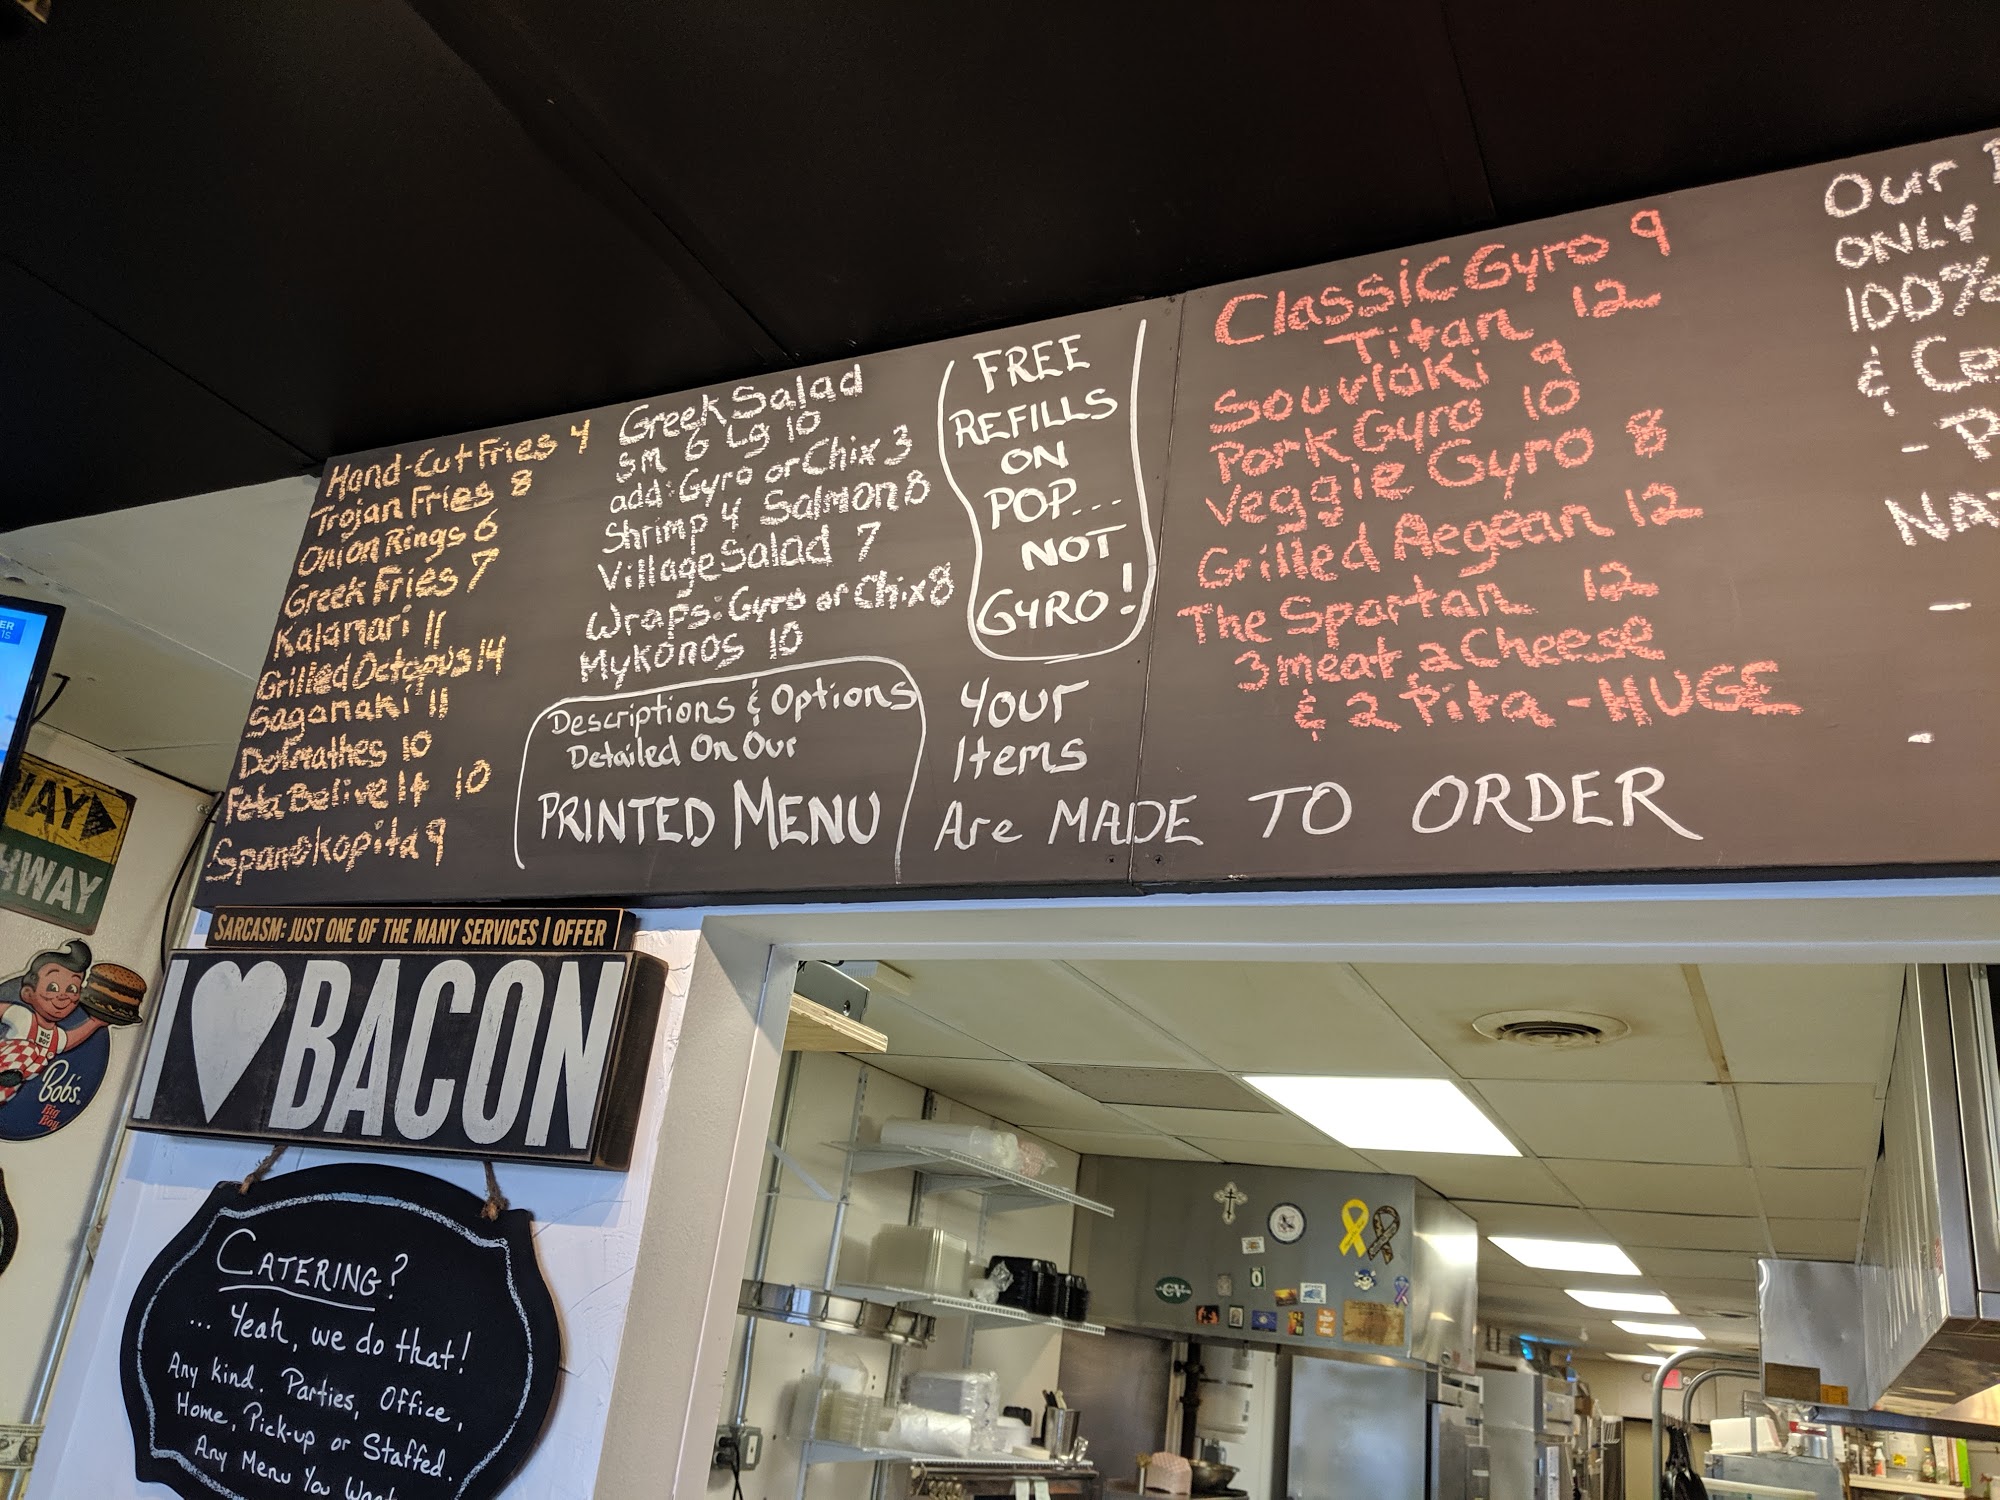 Hand-Cut Fries 4
Trojan Fries 8
Onion Rings 6
Greek Fries 7
Kalamari 11
Grilled Octopus 14
Saganaki 11
Dolmathes 10
Feta Belive It 10
Spanokopita 9
Greek Salad
SM 6 Lg 10
add: Gyro or Chix 3
Shrimp 4 Salmon 8
Village Salad 7
Wraps: Gyro or Chix 8
Mykonos 10
Descriptions & Options
Detailed On Our
PRINTED MENU
FREE
REFILLS
ON
POP...
NOT
GYRO!
Your
Items
Are MADE TO ORDER
Classic Gyro 9
Titan 12
Souvlaki 9
Pork Gyro 10
Veggie Gyro 8
Grilled Aegean 12
The Spartan 12
3 meat 2 Cheese
& 2 Pita - HUGE
Our
ONLY
100%
&
SARCASM: JUST ONE OF THE MANY SERVICES I OFFER
I ♥ BACON
CATERING?
... Yeah, we do that!
Any kind. Parties, Office,
Home, Pick-up or Staffed.
Any Menu You Want
BIG BOY
Bob's
Big
Boy